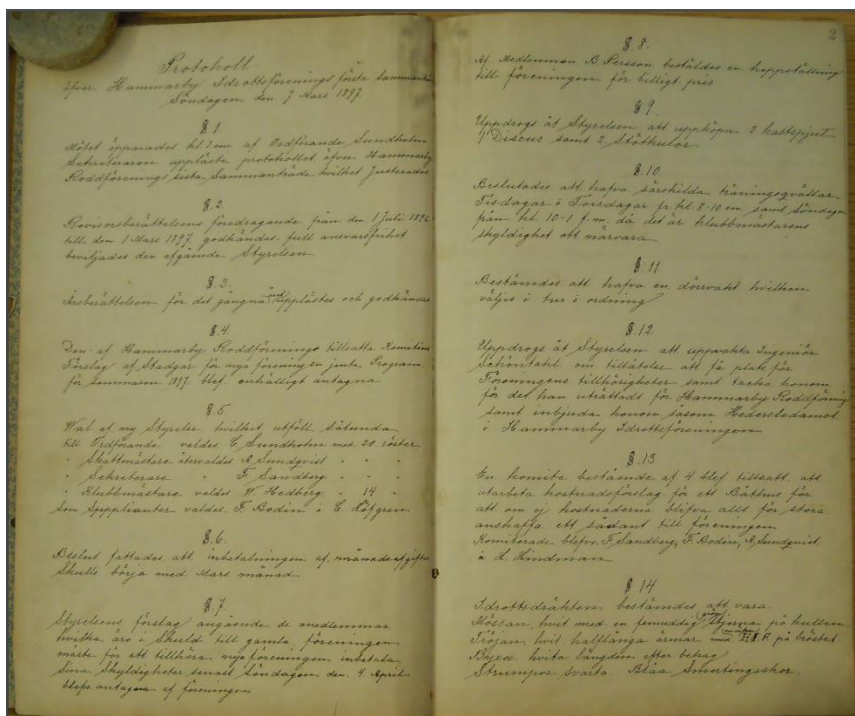 Protokoll
öfver Hammarby Idrottsförenings första Samman
Söndagen den 7 Mars 1897.
§.1
Mötet öppnades kl. 1 em. af Ordförande Sundholm
Sekreteraren uppläste protokollet öfver Hammarby
Roddförenings sista Sammanträde hvilket Justerades
§.2.
Revisorsberättelsens föredragande från den 1 Juli 1896
till den 1 Mars 1897. godkändes. full ansvarsfrihet
beviljades den afgående Styrelsen
§.3.
Årsberättelsen för det gångna året upplästes och godkändes
§.4
Den af Hammarby Roddförenings tillsatta Komiténs
Förslag af Stadgar för nya förening en jemte Program
för sommaren 1897. blef enhälligt antagna
§.5.
Wal af ny Styrelse hvilket utföll sålunda
till Ordförande valdes C. Sundholm med 20 röster
" Skattmästare återvaldes A. Sundqvist " " "
" Sekreterare " F. Sandberg " " "
" Klubbmästare valdes W. Hedberg " 14 "
Som Supplianter valdes. F. Bodin & C Löfgren
§.6.
Beslut fattades att inbetalningen af månadsafgifter
Skulle börja med Mars månad
§.7
Styrelsens förslag angående de medlemmar
hvilka äro i Skuld till gamla föreningen
måste för att tillhöra nya föreningen inbetala
sina Skyldigheter senast Söndagen den 4 April
blefvo antagna af föreningen
2
§.8.
Af Medlemmen B Persson beställdes en hoppställning
till föreningen för billigt pris
§ 9.
Uppdrogs åt Styrelsen att uppköpa 2 kastspjut
1 Discus samt 2 Stötkulor
§.10.
Beslutades att hafva särskilda träningsqvällar
Tisdagar & Torsdagar fr kl 8-10 em samt Söndagar
från kl 10-1 f.m. då det är klubbmästarens
skyldighet att närvara.
§.11
Bestämdes att hafva en dörrvakt hvilken
väljes i tur & ordning
§.12.
Uppdrogs åt Styrelsen att uppvakta Ingeniör
om tillåtelse att få plats för
Föreningens tillhörigheter samt tacka honom
för det han uträttadt för Hammarby Roddförening
samt inbjuda honom såsom Hedersledamot
i Hammarby Idrottsföreningen
§.13
En komite bestående af 4 blef tillsatt att
utarbeta kostnadsförslag för ett Båthus för
att om ej kostnaderna blifva allt för stora
anskaffa ett sådant till föreningen
Komiterade blefvo. F. Sandberg, F. Bodin, A. Sundqvist
& A. Lindman
§ 14
Idrottsdräkten bestämdes att vara.
Mössan, hvit med en femuddig grön Stjerna på kullen
Tröjan, hvit halflånga ärmar med H.I.F på bröstet
Byxor hvita längden efter behag
Strumpor Svarta. Blåa Smertingsskor.